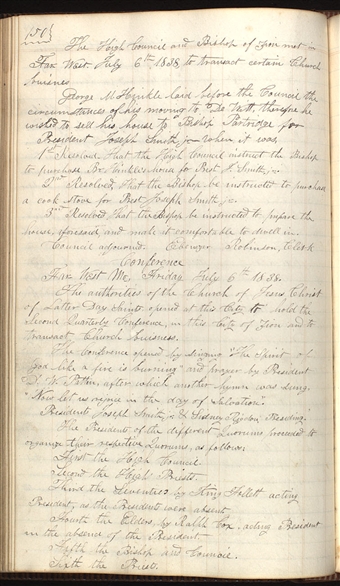 150
The High Council and Bishop of Zion met in
Far West July 6th 1838 to transact certain Church
buisness
George M Hinkle laid before the Council the
circumstance of his moving to "De Witt, therefore he
wished to sell his house to" Bishop Partridge for
President Joseph Smith, jr— When it was
1st Resolved, That the High Council instruct the Bishop
to purchase Br Hinkle's house for Prest J. Smith, jr—
2nd Resolved, That the Bishop be instructed to purchase
a cook stove for Prest Joseph Smith, jr
3rd Resolved, That the Bishop be instructed to prepare the
house, aforesaid, and make it comfortable to dwell in.
Council adjourned. Ebenezer Robinson, Clerk
Conference
Far West Mo, Friday July 6th 1838.
The authorities of the Church of Jesus Christ
of Latter Day Saints opened at this City to hold the
Second Quarterly Conference, in this City of Zion and to
transact Church buisness.
The Conference opened by singing "The Spirit of
God like a fire is burning" and prayer by President
D. W. Patten, after which another hymn was sung.
"Now let us rejoice in the day of Salvation".
Presidents Joseph Smith, jr & Sidney Rigdon Presiding.
The Presidents of the different Quorums proceeded to
organize their respective Quorums, as follows:
First the High Council
Second the High Priests
Third the Seventies by King Follett acting
President, as the Presidents were absent
Fourth the Elders, by Ralph Cox, acting President
in the absence of the President
Fifth the Bishop and Council.
Sixth the Priests.